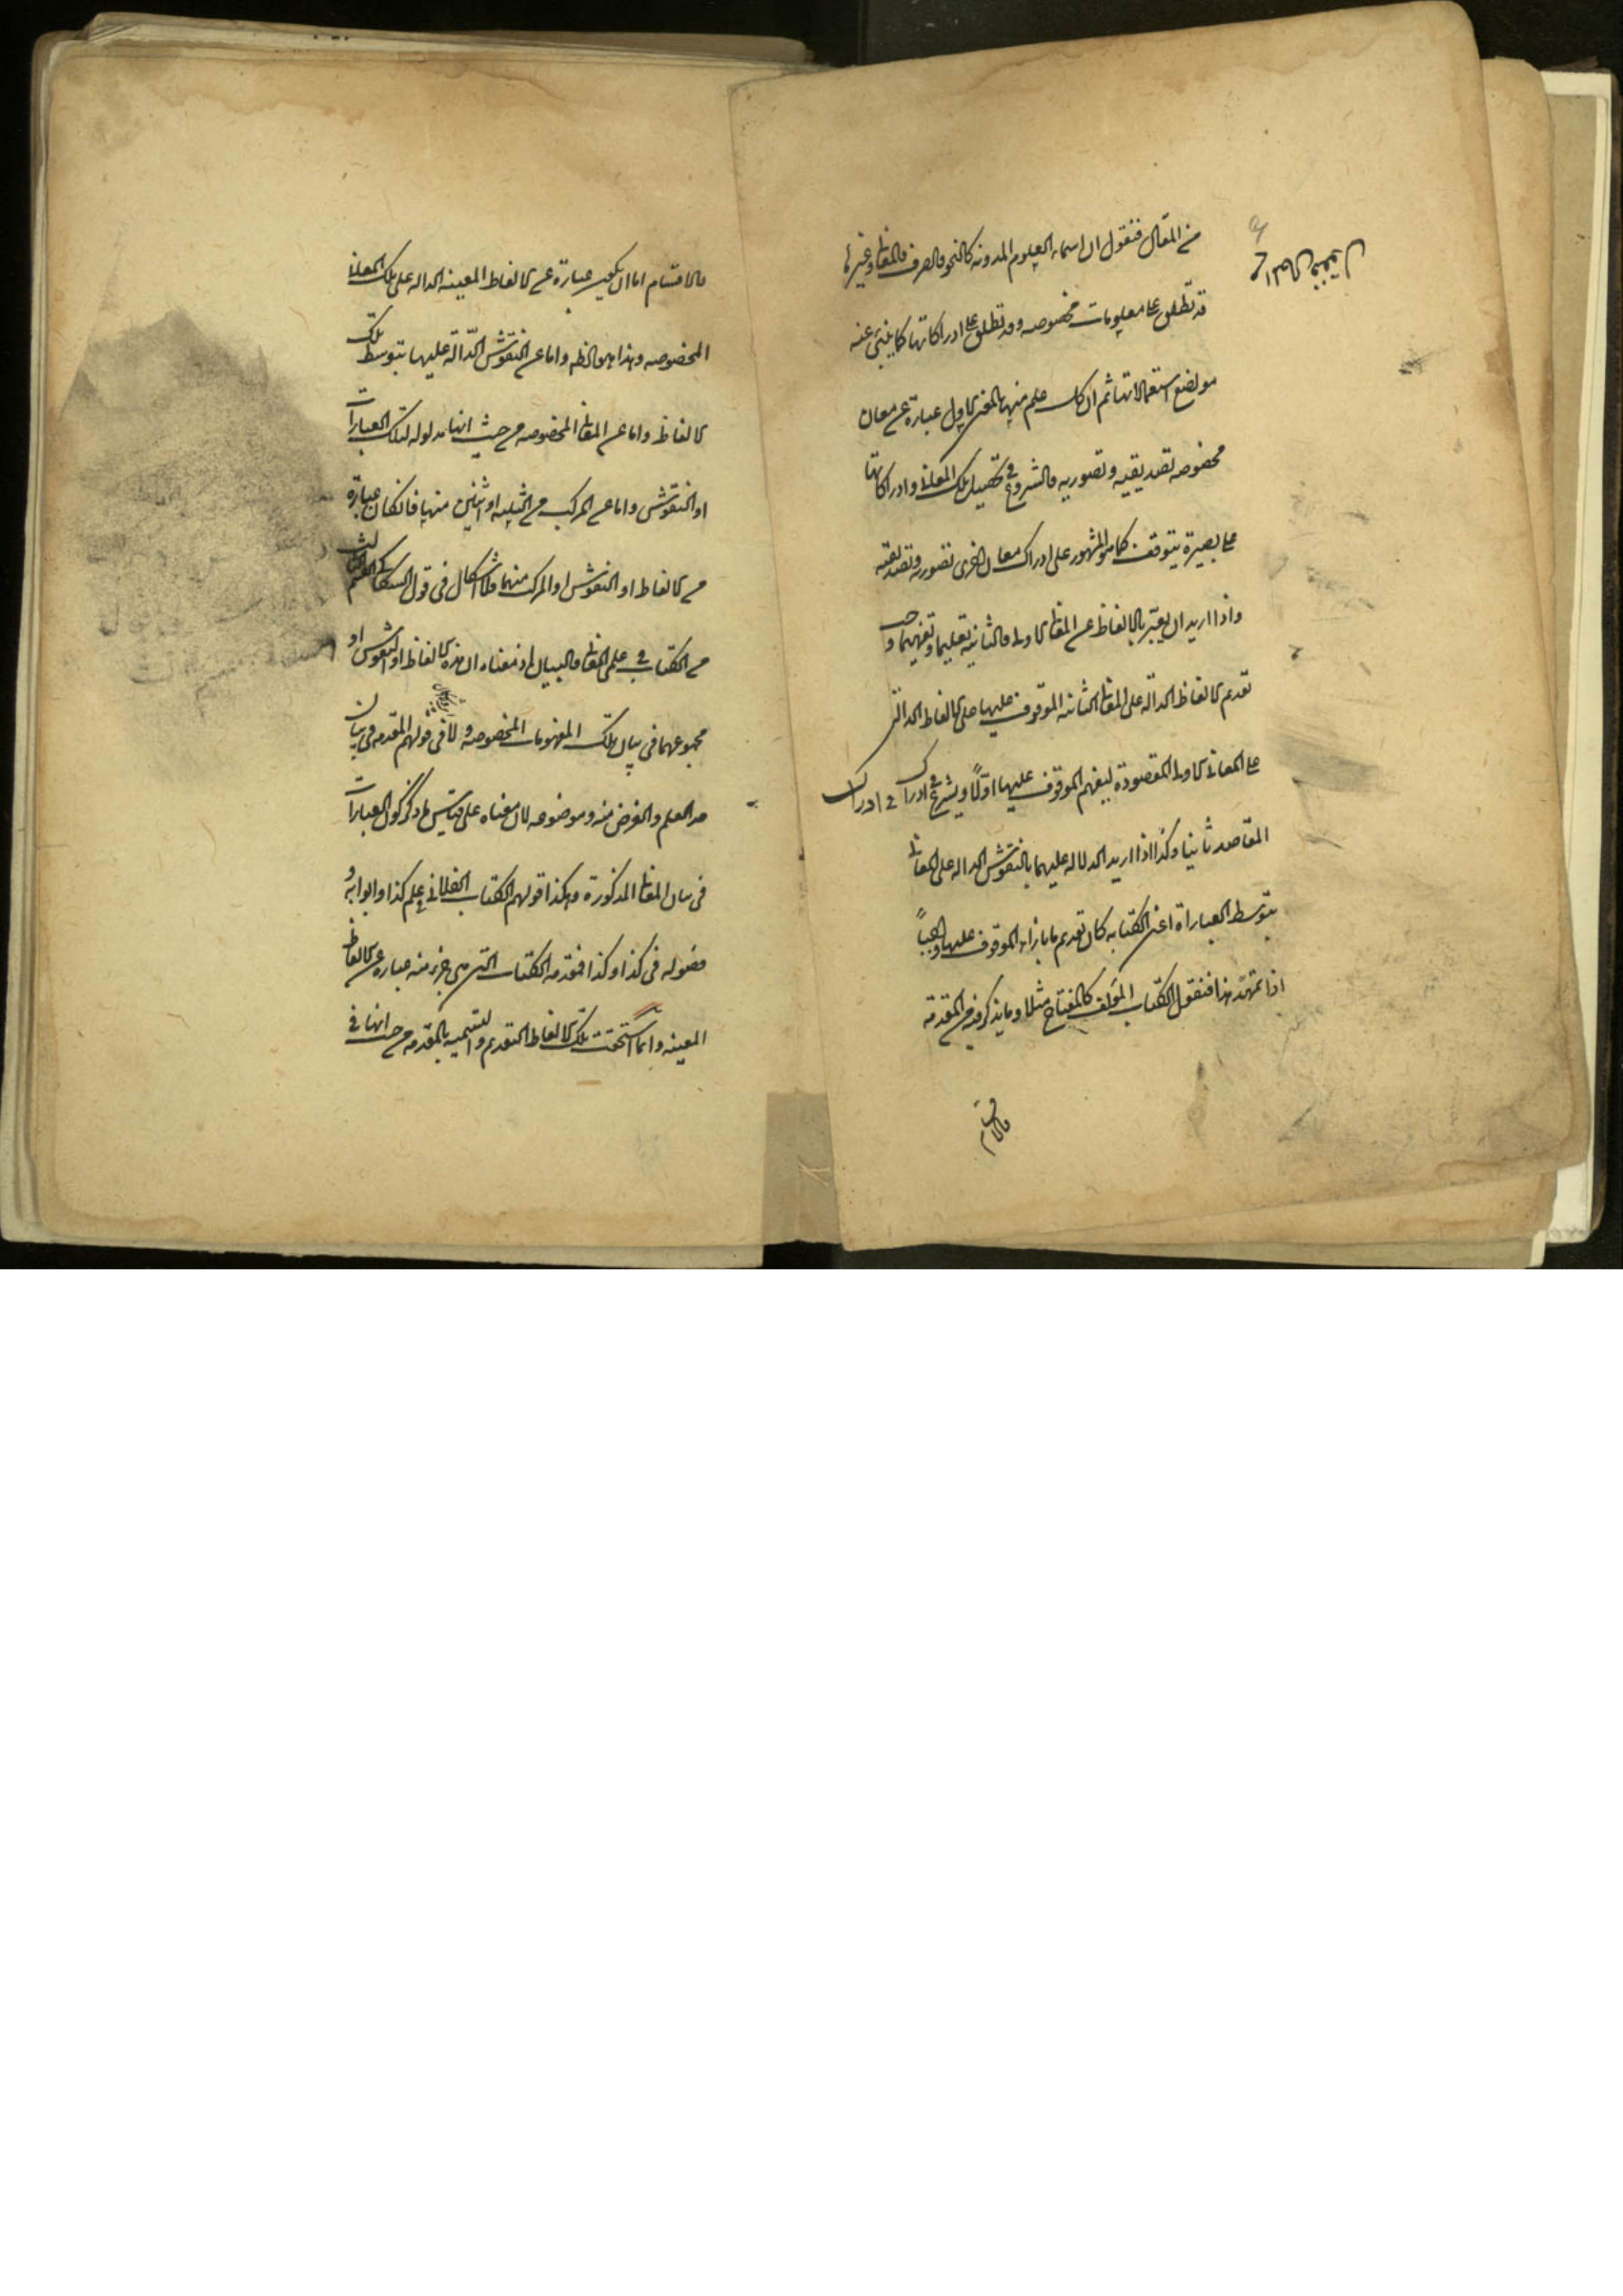 من المقال فنقول ان اسماء العلوم المدونه كالنحو والصرف والمعانى وغيرها
قد تطلق على معلومات مخصوصه وقد تطلق على ادراكاتها كما ينبئ عنه
مواضع استعمالاتها ثم ان كل علم منها بالمعنى الاول عبارة عن معان
مخصوصه تصديقيه وتصوريه والشروع فى تحصيل تلك المعانى وادراكاتها
على بصيرة يتوقف كما هو المشهور على ادراك معان اخرى تصوريه وتصديقيه
واذا اريد ان يعبّر بالالفاظ عن المعانى الاولى والثانيه تعليما وتفهيما وجب
تقديم الالفاظ الدالة على المعانى الثانيه الموقوف عليها على الالفاظ الدالة
على المعانى الاولى المقصودة ليفهم الموقوف عليها اوّلاً ويشرع فى ادراك
فى ادراك
المقاصد ثانيا وكذا اذا اريد الدلاله عليهما بالنقوش الداله على المعانى
بتوسط العباراة اعنى الكتابه كان تقديم ما بازاء الموقوف عليها واجباً
اذا تمهّد هذا فنقول الكتاب المؤلف كالمفتاح مثلا وما يذكر فيه من المقدمة
والاقسام
من المقال فنقول
والاقسام اما ان يكون عبارة عن الالفاظ المعينه الداله على تلك المعانى
المخصوصه وهذا هو الظه واما عن النقوش الدّالّة عليها بتوسط تلك
الالفاظ واما عن المعانى المخصوصه من حيث انها مدلوله لتلك العبارات
او النقوش واما عن المركب من الثلثه او اثنين منها فان كان عبارة
من الالفاظ او النقوش او المركب منهما فلا اشكال فى قول السكاكى القسم الثالث
من الكتاب فى علمى المعانى والبيان اذ معناه ان هذه الالفاظ او النقوش او
مجموعهما فى بيان تلك المفهومات المخصوصه ولا فى قولهم المقدمه فى بيان
حد العلم والغرض منه وموضوعه لان معناه على قياس ما ذكر كون العبارات
فى بيان المعانى المذكورة وهكذا قولهم الكتاب الفلانى فى علم كذا وابوابه و
فصوله فى كذا وكذا فمقدمه الكتاب التى هى جزء منه عباره عن الالفاظ
المعينه وانما استحقت تلك الالفاظ التقديم والتسميه بالمقدمه من حيث انها فى